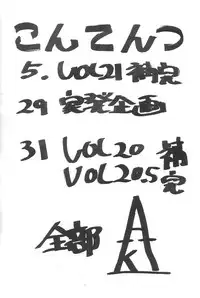 こんてんつ
5. VOL21 補完
29 突発企画
31 VOL20 補完
VOL20.5
全部 AKI